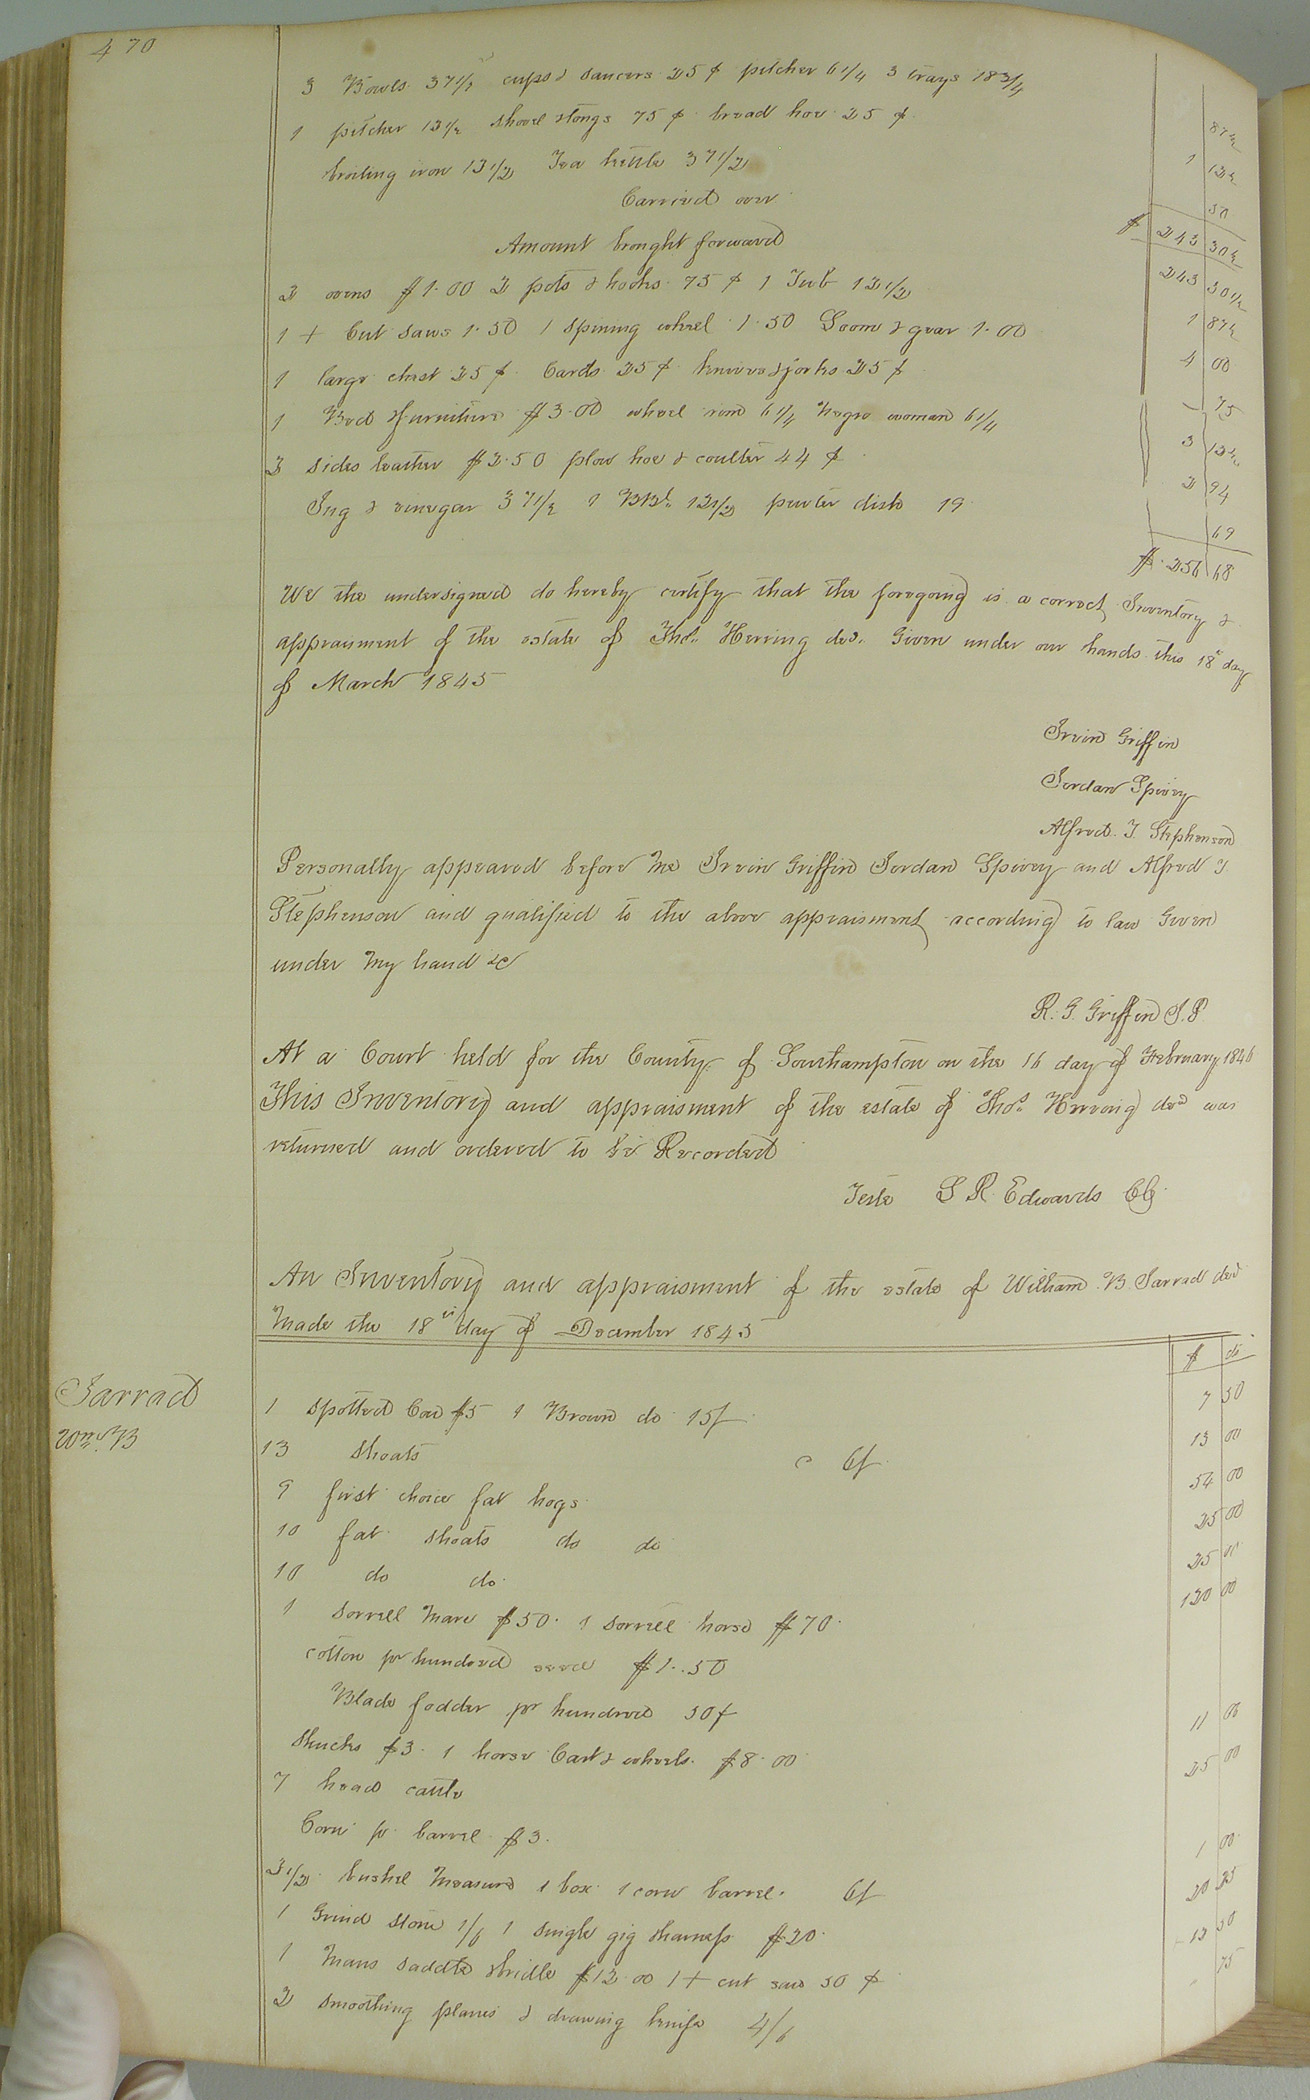 470
3 Bowls 37 1/2 cups & saucers 25 ¢ pitcher 6 1/4 3 trays 18 3/4 87 1/2
1 pitcher 12 1/2 shovel & tongs 75 ¢ broad hoe 25 ¢ 1 12 1/2
broiling iron 12 1/2 Tea kettle 37 1/2 50
Carried over $ 243 30 1/2
Amount brought forward 243 30 1/2
2 ovens $1.00 2 pots & hooks 75 ¢ 1 Tub 12 1/2 1 87 1/2
1 + Cut saws 1.50 1 spining wheel 1.50 Loom & gear 1.00 4 00
1 large chest 25 ¢ Cards 25 ¢ knives & forks 25 ¢ 75
1 Bed & furniture $3.00 wheel rim 6 1/4 Negro woman 6 1/4 3 12 1/2
2 sides leather $2.50 plow hoe & coulter 44 ¢ 2 94
Jug & vinegar 37 1/2 1 BBl. 12 1/2 pewter dish 19 69
$ 256 68
We the undersigned do hereby certify that the foregoing is a correct Inventory &
appraisment of the estate of Thos. Herring decd. Given under our hands this 18th day
of March 1845
Irvin Griffin
Jordan Spivey
Alfred. J. Stephenson
Personally appeared before me Irvin Griffin Jordan Spivey and Alfred J
Stephenson and qualified to the above appraisment according to law Given
under my hand &c
R. G. Griffin J.P
At a Court held for the County of Southampton on the 16 day of February 1846
This Inventory and appraisment of the estate of Thos. Herring decd was
returned and ordered to be Recorded
Teste L R Edwards CC
An Inventory and appraisment of the estate of William B Jarrad decd
made the 18th day of December 1845
$ cts
Jarrad
Wm. B
1 spotted Cow $5 1 Brown do 15/ 7 50
13 shoats @ 6/ 13 00
9 first choice fat hogs 54 00
10 fat shoats do do 25 00
10 do do 25 00
1 sorrell mare $50. 1 sorrell horse $70. 120 00
cotton pr hundred seed $1.50
Blade fodder pr hundred 50 ¢
Shucks $3. 1 horse Cart & wheels. $8.00 11 00
7 head cattle 25 00
Corn pr barrel $3.
2 1/2 bushel measures 1 box 1 corn barrel. 6/ 1 00
1 Grind stone 1/6 1 single gig & harness $20. 20 25
1 mans saddle & bridle $12.00 1 + cut saw 50 ¢ 12 50
2 smoothing planes & drawing knife 4/6 75